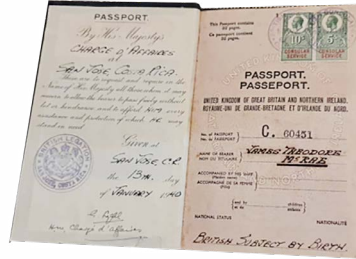 PASSPORT.
By His Majesty's
CHARGE d'AFFAIRES
at
SAN JOSE, COSTA RICA.
These are to request and require in the
Name of His Majesty all those whom it may
concern to allow the bearer to pass freely without
let or hindrance and to afford him every
assistance and protection of which he may
stand in need.
Given at
SAN JOSE C.R.
the 13th day
of JANUARY 1940
H.M. Chargé d'Affaires
This Passport contains
32 pages.
Ce passeport contient
32 pages.
10/-
5/-
CONSULAR
SERVICE
CONSULAR
SERVICE
PASSPORT.
PASSEPORT.
UNITED KINGDOM OF GREAT BRITAIN AND NORTHERN IRELAND.
ROYAUME-UNI DE GRANDE-BRETAGNE ET D'IRLANDE DU NORD.
No. of PASSPORT
No. du PASSEPORT
C. 60451
NAME OF BEARER
NOM DU TITULAIRE
JAMES THEODORE
McRAE
ACCOMPANIED BY HIS WIFE
(Maiden name)
ACCOMPAGNE DE SA FEMME
(Née)
and by
et de
children
enfants
NATIONAL STATUS
NATIONALITE
BRITISH SUBJECT BY BIRTH.